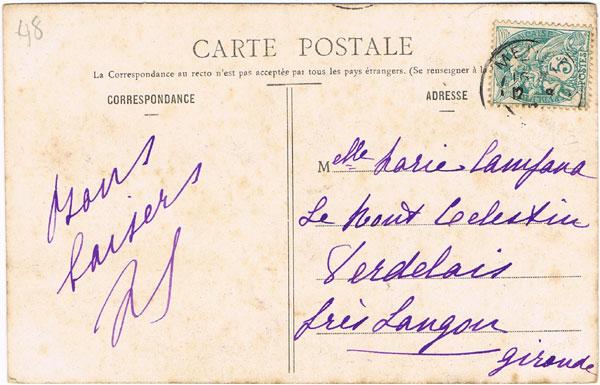 48
CARTE POSTALE
La Correspondance au recto n'est pas acceptée par tous les pays étrangers. (Se renseigner à la
CORRESPONDANCE
ADRESSE
Bons
baisers
Melle Marie Lanfana
Le Mont Celestin
Verdelais
près Langon
gironde
5
POSTES
12